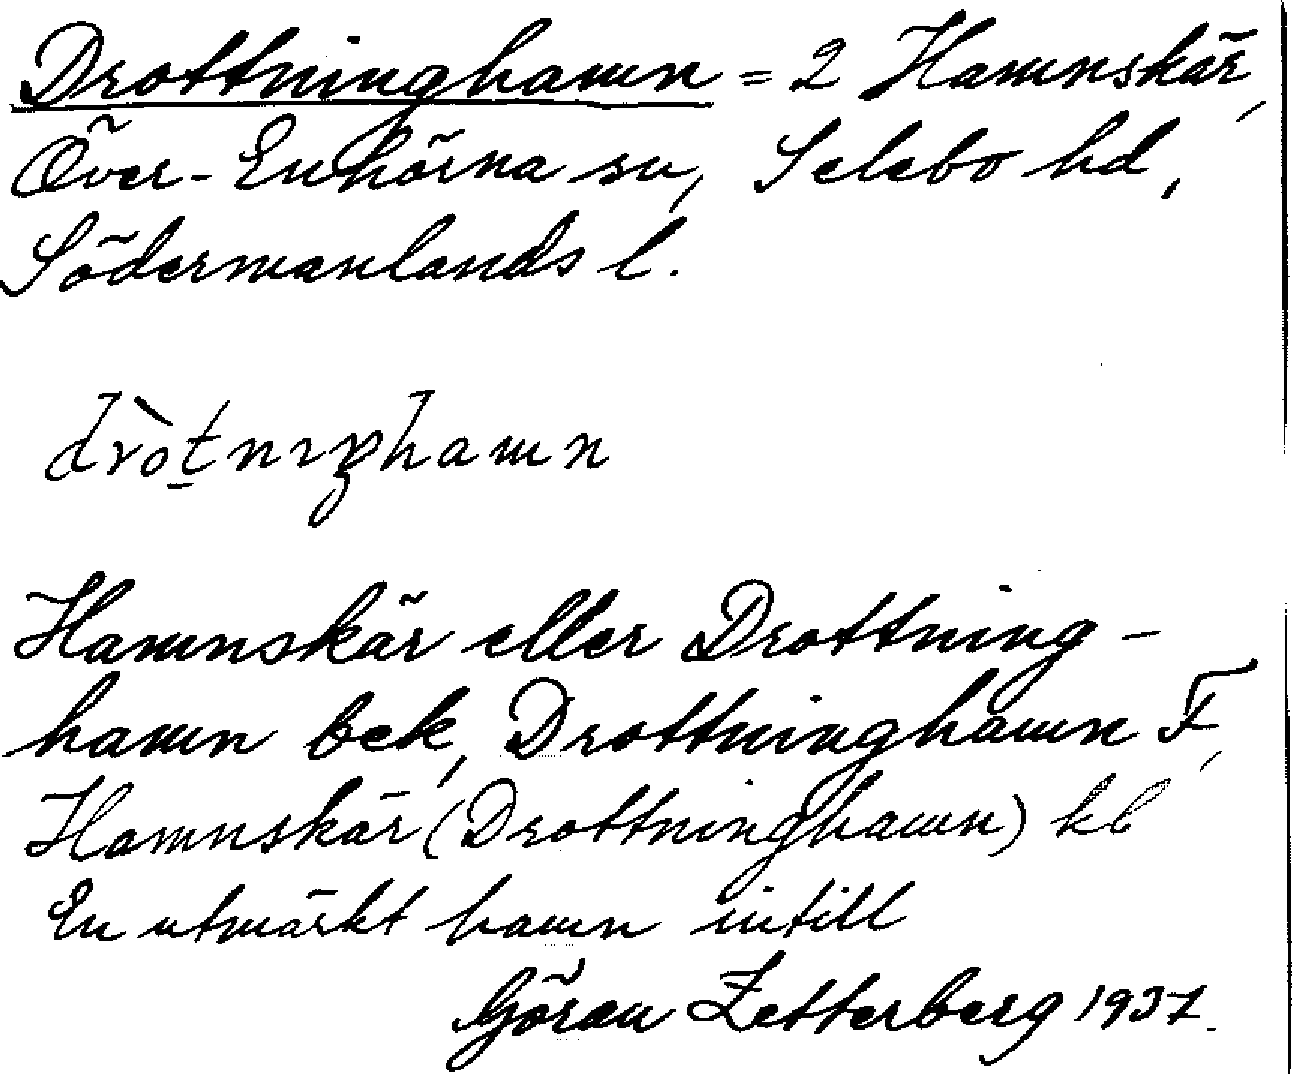 Drottninghamn = 2 Hamnskär,
Över-Enhörna sn, Selebo hd,
Södermanlands l.
dròt̠nıŋhamn
Hamnskär eller Drottning-
hamn bek, Drottninghamn F,
Hamnskär (Drottninghamn) kb
En utmärkt hamn intill
Göran Zetterberg 1937.